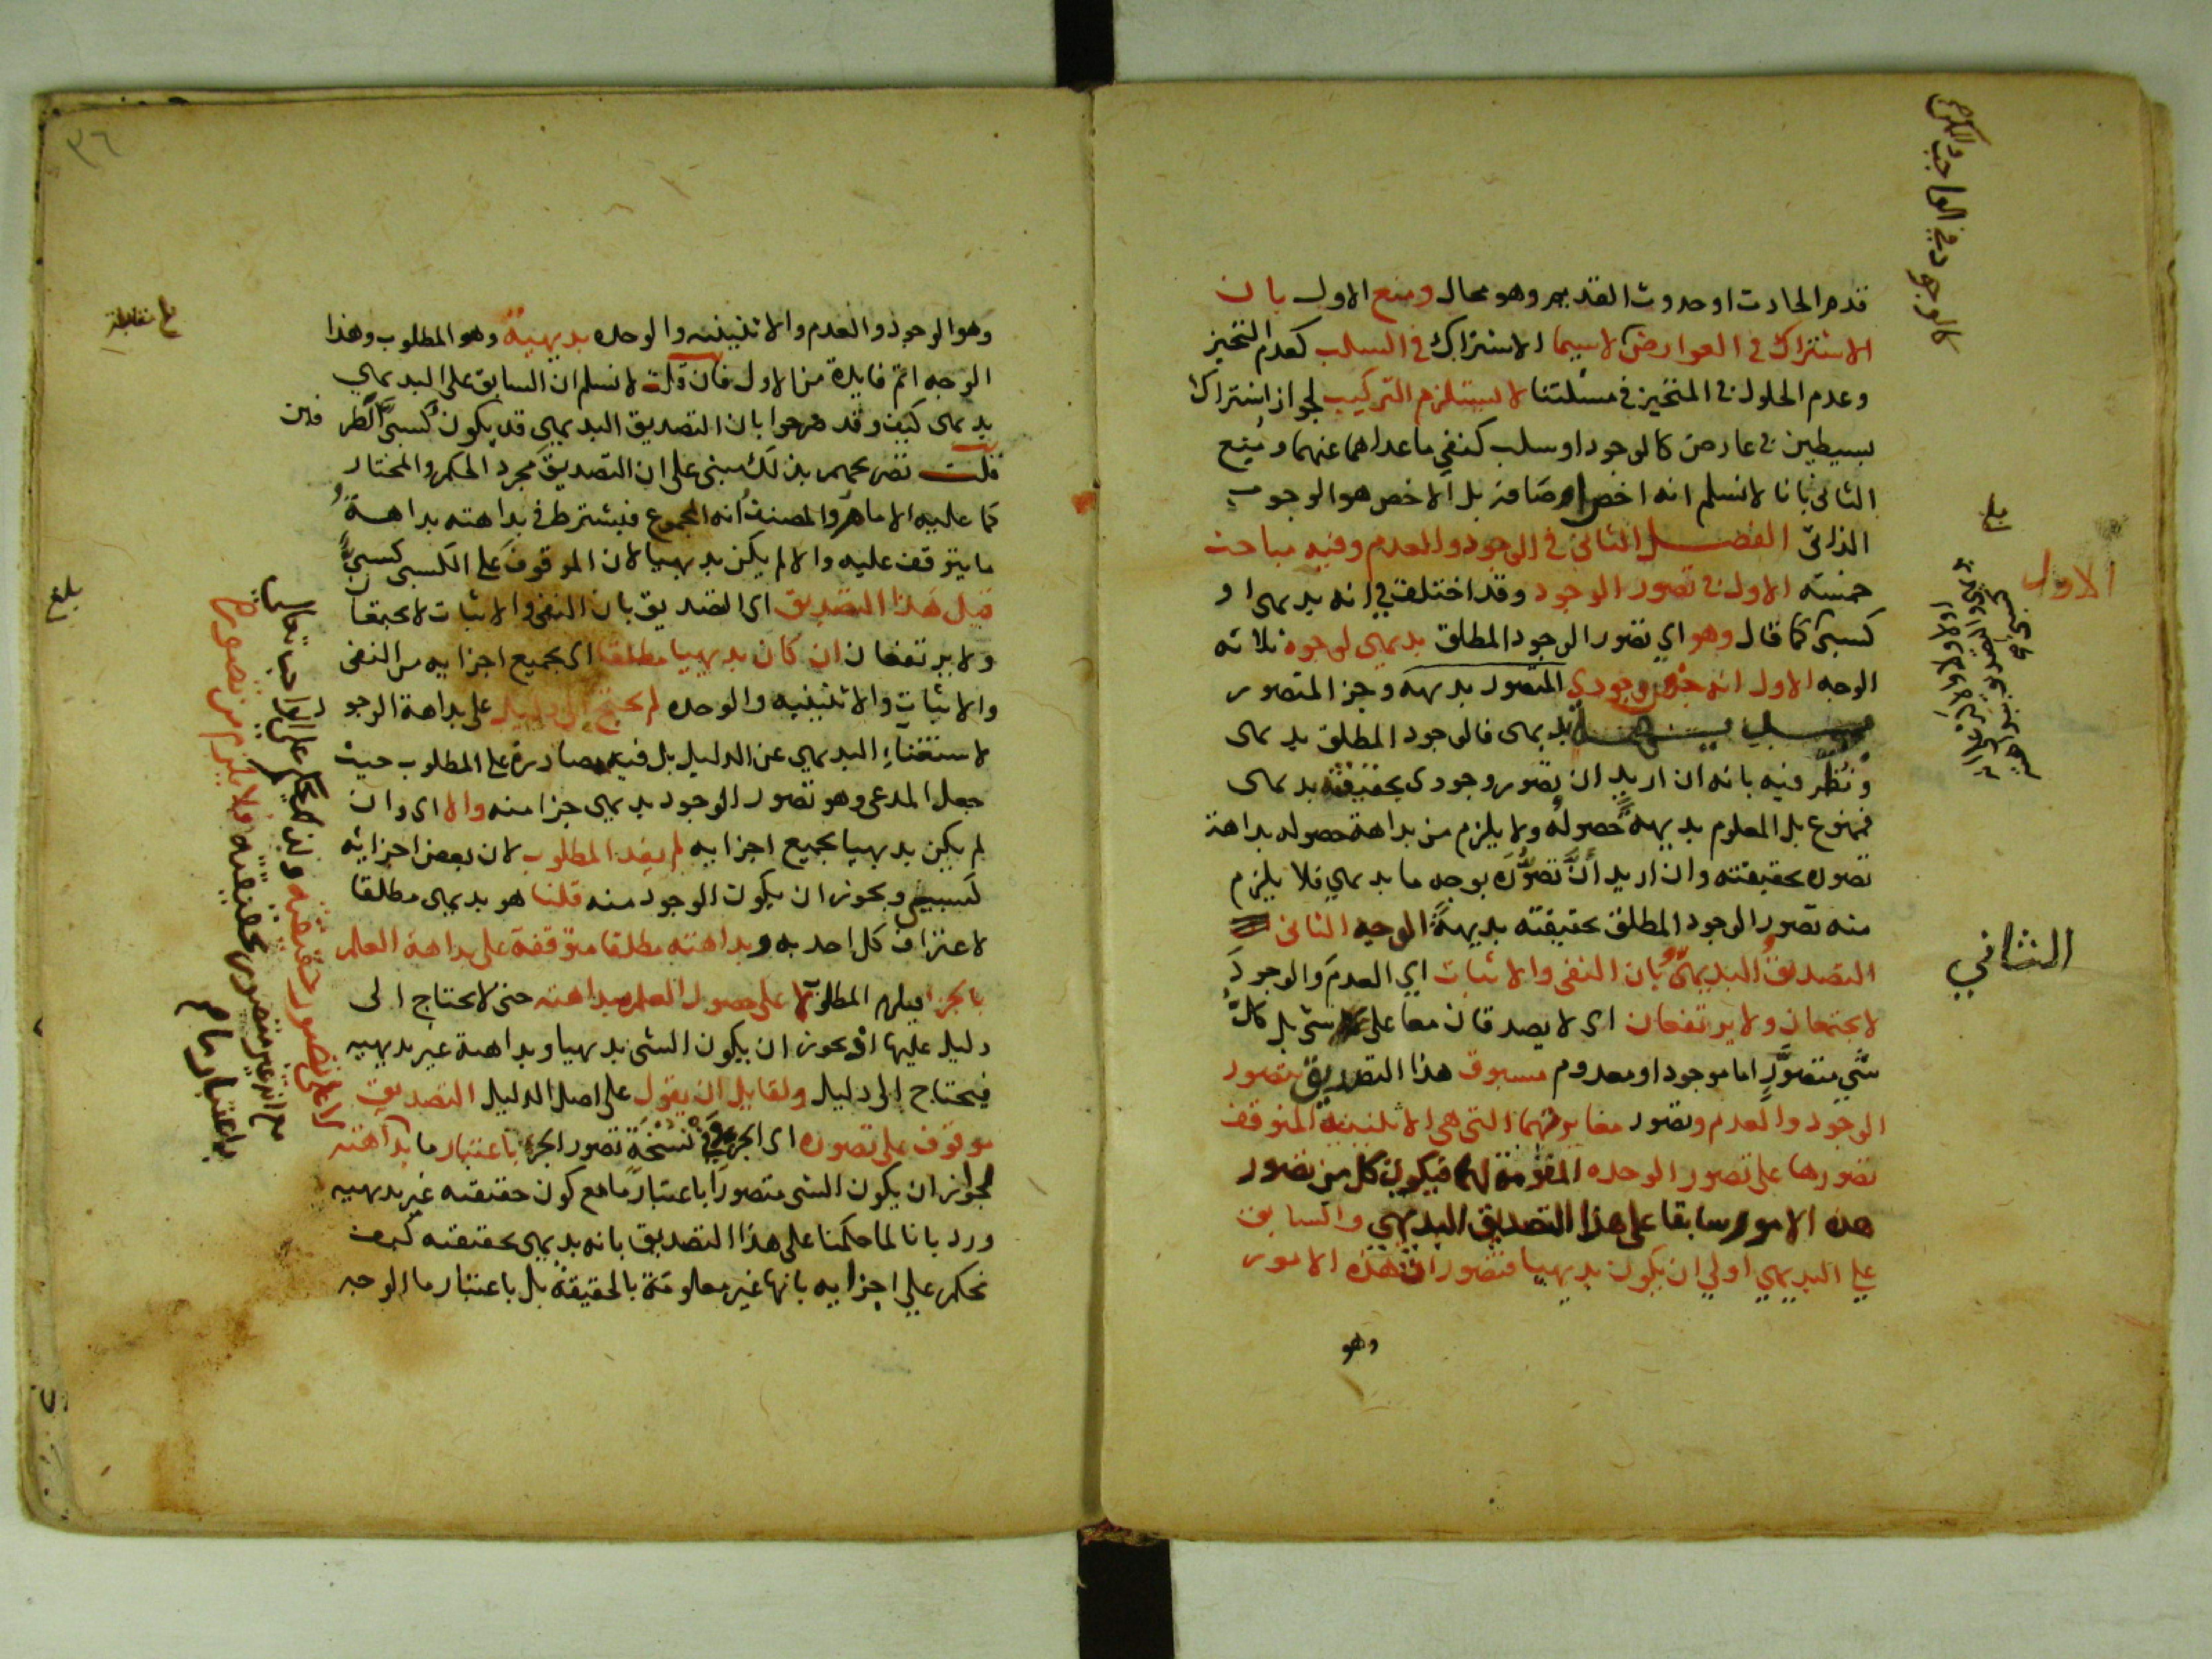 قدم الحادث او حدوث القديم وهو محال ومنع الاول بان
الاشتراك في العوارض لاسيما الاشتراك في السلب كعدم التحيز
وعدم الحلول في المتحيز في مسئلتنا لا يستلزم التركيب لجواز اشتراك
بسيطين في عارض كالوجود او سلب كنفي ما عداهما عنهما ومنع
الثاني بانا لا نسلم انه اخص اوصافه بل الاخص هو الوجوب
الذاتي الفصل الثاني في الوجود والعدم وفيه مباحث
خمسة الاول في تصور الوجود وقد اختلف في انه بديهي او
كسبي كما قال وهو اي تصور الوجود المطلق بديهي لوجوه ثلاثه
الوجه الاول انه جزء وجودي المتصور بديهة وجز المتصور
بديهي فالوجود المطلق بديهي
ونظر فيه بانه ان اريد ان تصور وجودي بحقيقته بديهي
فممنوع بل المعلوم بديهة حصوله ولا يلزم من بداهة حصوله بداهة
تصوره بحقيقته وان اريد ان تصوره بوجه ما بديهي فلا يلزم
منه تصور الوجود المطلق بحقيقته بديهة الوجه الثاني
التصديق البديهي بان النفي والاثبات اي العدم والوجود
لا يجتمعان ولا يرتفعان اي لا يصدقان معا على شي بل كل
شي متصور اما موجود او معدوم مسبوق هذا التصديق بتصور
الوجود والعدم وتصور مغايرتهما التي هي الاثنينية المتوقف
تصورها على تصور الوحده المقومة لها فيكون كل من تصور
هذه الامور سابقا على هذا التصديق البديهي والسابق
على البديهي اولي ان يكون بديهيا فتصورات هذه الامور
وهو
كالوجود في الواجب والممكن
بلغ
الاول
الثاني
٣٦
وهو الوجود والعدم والاثنينيه والوحده بديهية وهو المطلوب وهذا
الوجه اتم فايدة من الاول فان قلت لا نسلم ان السابق على البديهي
بديهي كيف وقد صرحوا بان التصديق البديهي قد يكون كسبي الطرفين
قلت تصريحهم بذلك مبني على ان التصديق مجرد الحكم والمختار
كما عليه الامام والمصنف انه المجموع فيشترط في بداهته بداهة
ما يتوقف عليه والا لم يكن بديهيا لان الموقوف على الكسبي كسبي
قيل هذا التصديق اي التصديق بان النفي والاثبات لا يجتمعان
ولا يرتفعان ان كان بديهيا مطلقا اي بجميع اجزايه من النفي
والاثبات والاثنينيه والوحده لم يحتج الى دليل على بداهة الوجود
لاستغناء البديهي عن الدليل بل فيه مصادرة على المطلوب حيث
جعل المدعى وهو تصور الوجود بديهي جزا منه والا اي وان
لم يكن بديهيا بجميع اجزايه لم يفد المطلوب لان بعض اجزائه
كسبي ويجوز ان يكون الوجود منه قلنا هو بديهي مطلقا
لاعتراف كل احد به وبداهته مطلقا متوقفة على بداهة العلم
بالجز فيلزم المطلوب لا على حصول العلم ببداهته حتى لا يحتاج الى
دليل عليها اذ يجوز ان يكون الشي بديهيا وبداهة غير بديهيه
فيحتاج الى دليل ولقايل ان يقول على اصل الدليل التصديق
موقوف على تصوره اي الجز وفي نسخة تصور الجز باعتبار ما بداهته
لجواز ان يكون الشي متصورا باعتبار ما مع كون حقيقته غير بديهيه
ورد بانا لما حكمنا على هذا التصديق بانه بديهي بحقيقته كيف
نحكم على اجزايه بانها غير معلومة بالحقيقة بل باعتبار ما الوجه
بلغ مقابلة
بلغ
لا على تصور حقيقته
فلا يلزم من تصوره
باعتبار ما م